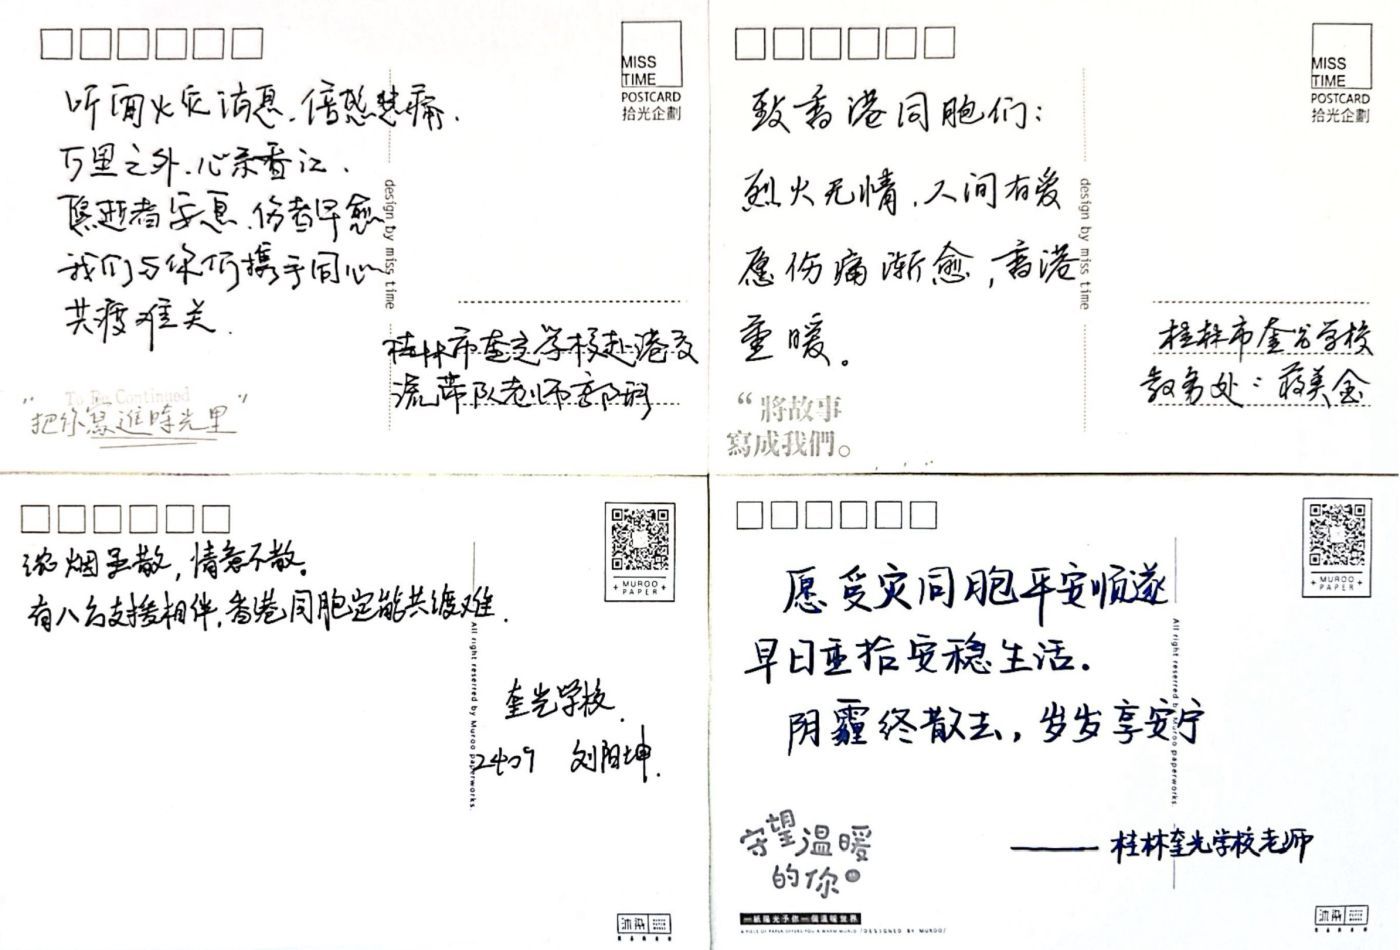 MISS
TIME
POSTCARD
拾光企劃
听闻火灾消息.倍感悲痛.
万里之外.心系香江.
愿逝者安息.伤者早愈
我们与你们携手同心
共渡难关.
design by miss time
桂林市奎光学校赴港交
流带队老师
To Be Continued
“把你寫進時光里”
MISS
TIME
POSTCARD
拾光企劃
致香港同胞们:
烈火无情.人间有爱
愿伤痛渐愈,香港
重暖。
design by miss time
桂林市奎光学校
教务处:蒋美金
“將故事
寫成我們。
MUROO
PAPER
浓烟虽散,情意不散。
有八方支援相伴,香港同胞定能共渡难.
All right reserved by Muroo paperworks.
奎光学校.
2409 刘阳坤.
MUROO
PAPER
愿受灾同胞平安顺遂
早日重拾安稳生活.
阴霾终散去,岁岁享安宁
All right reserved by Muroo paperworks.
——桂林奎光学校老师
守望温暖
的你
一紙陽光予你一個溫暖世界
A PIECE OF PAPER OFFERS YOU A WARM WORLD /DESIGNED BY MUROO/